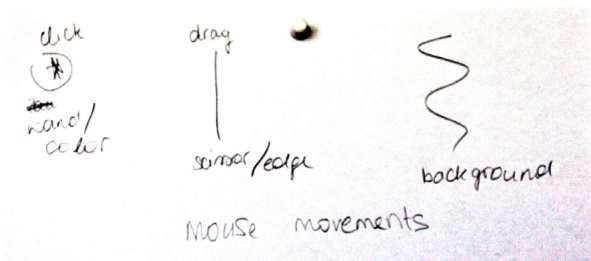 click
wand/
color
drag
scissor/edge
background
Mouse movements